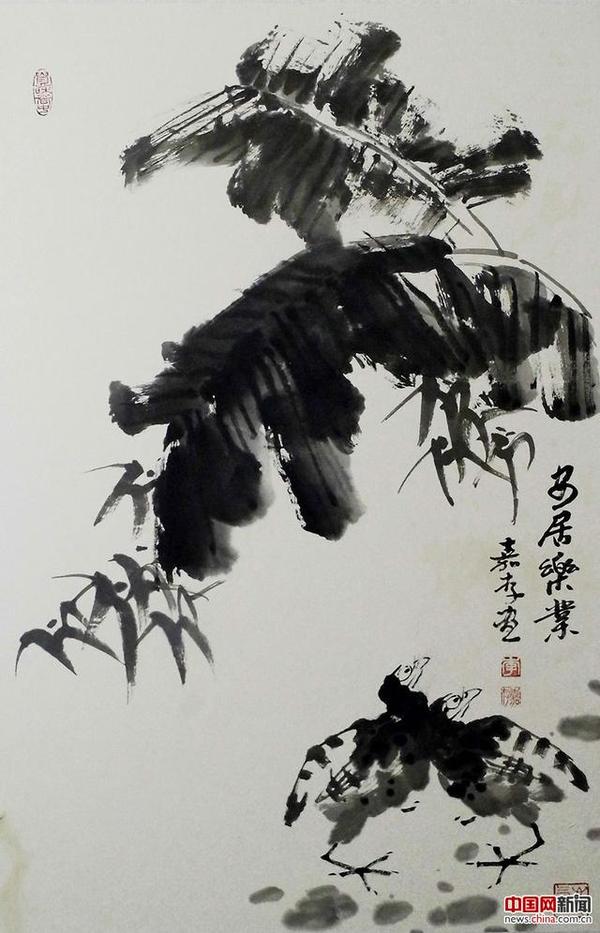 安居樂業
嘉存画
中国网新闻
news.china.com.cn